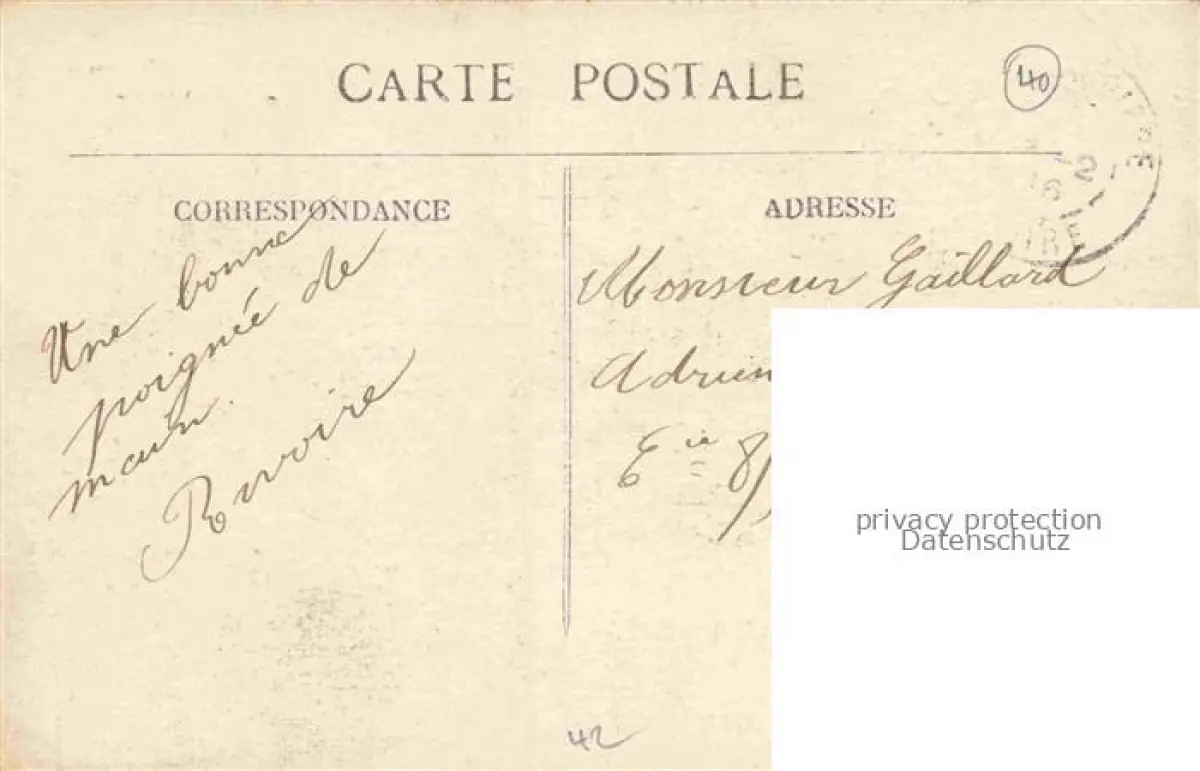 CARTE POSTALE
40
CORRESPONDANCE
Une bonne
poignée de
main.
Rivoire
ADRESSE
Monsieur Gaillard
privacy protection
Datenschutz
42